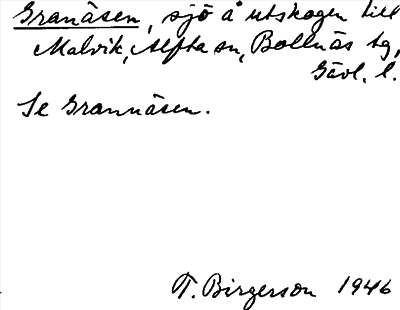 Granåsen, sjö å utskogen till
Malvik, Alfta sn, Bollnäs tg,
Gävl. l.
Se Grannåsen.
T. Birgerson 1946